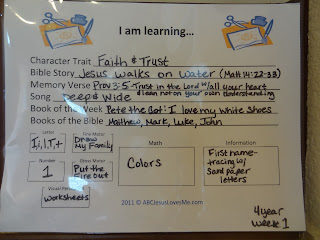 I am learning...
Character Trait Faith & Trust
Bible Story Jesus walks on water (Matt 14:22-33)
Memory Verse Prov 3:5 Trust in the Lord w/all your heart
& lean not on your own understanding
Song Deep & Wide
Book of the Week Pete the Cat: I love my White Shoes
Books of the Bible Matthew, Mark, Luke, John
Letter
I,i, T,t
Fine Motor
Draw My Family
Number
1
Gross Motor
Put the Fire out
Visual
Worksheets
Math
Colors
Information
First name-
tracing w/
Sand paper
letters
2011 © ABCJesusLovesMe.com
4 year
week 1